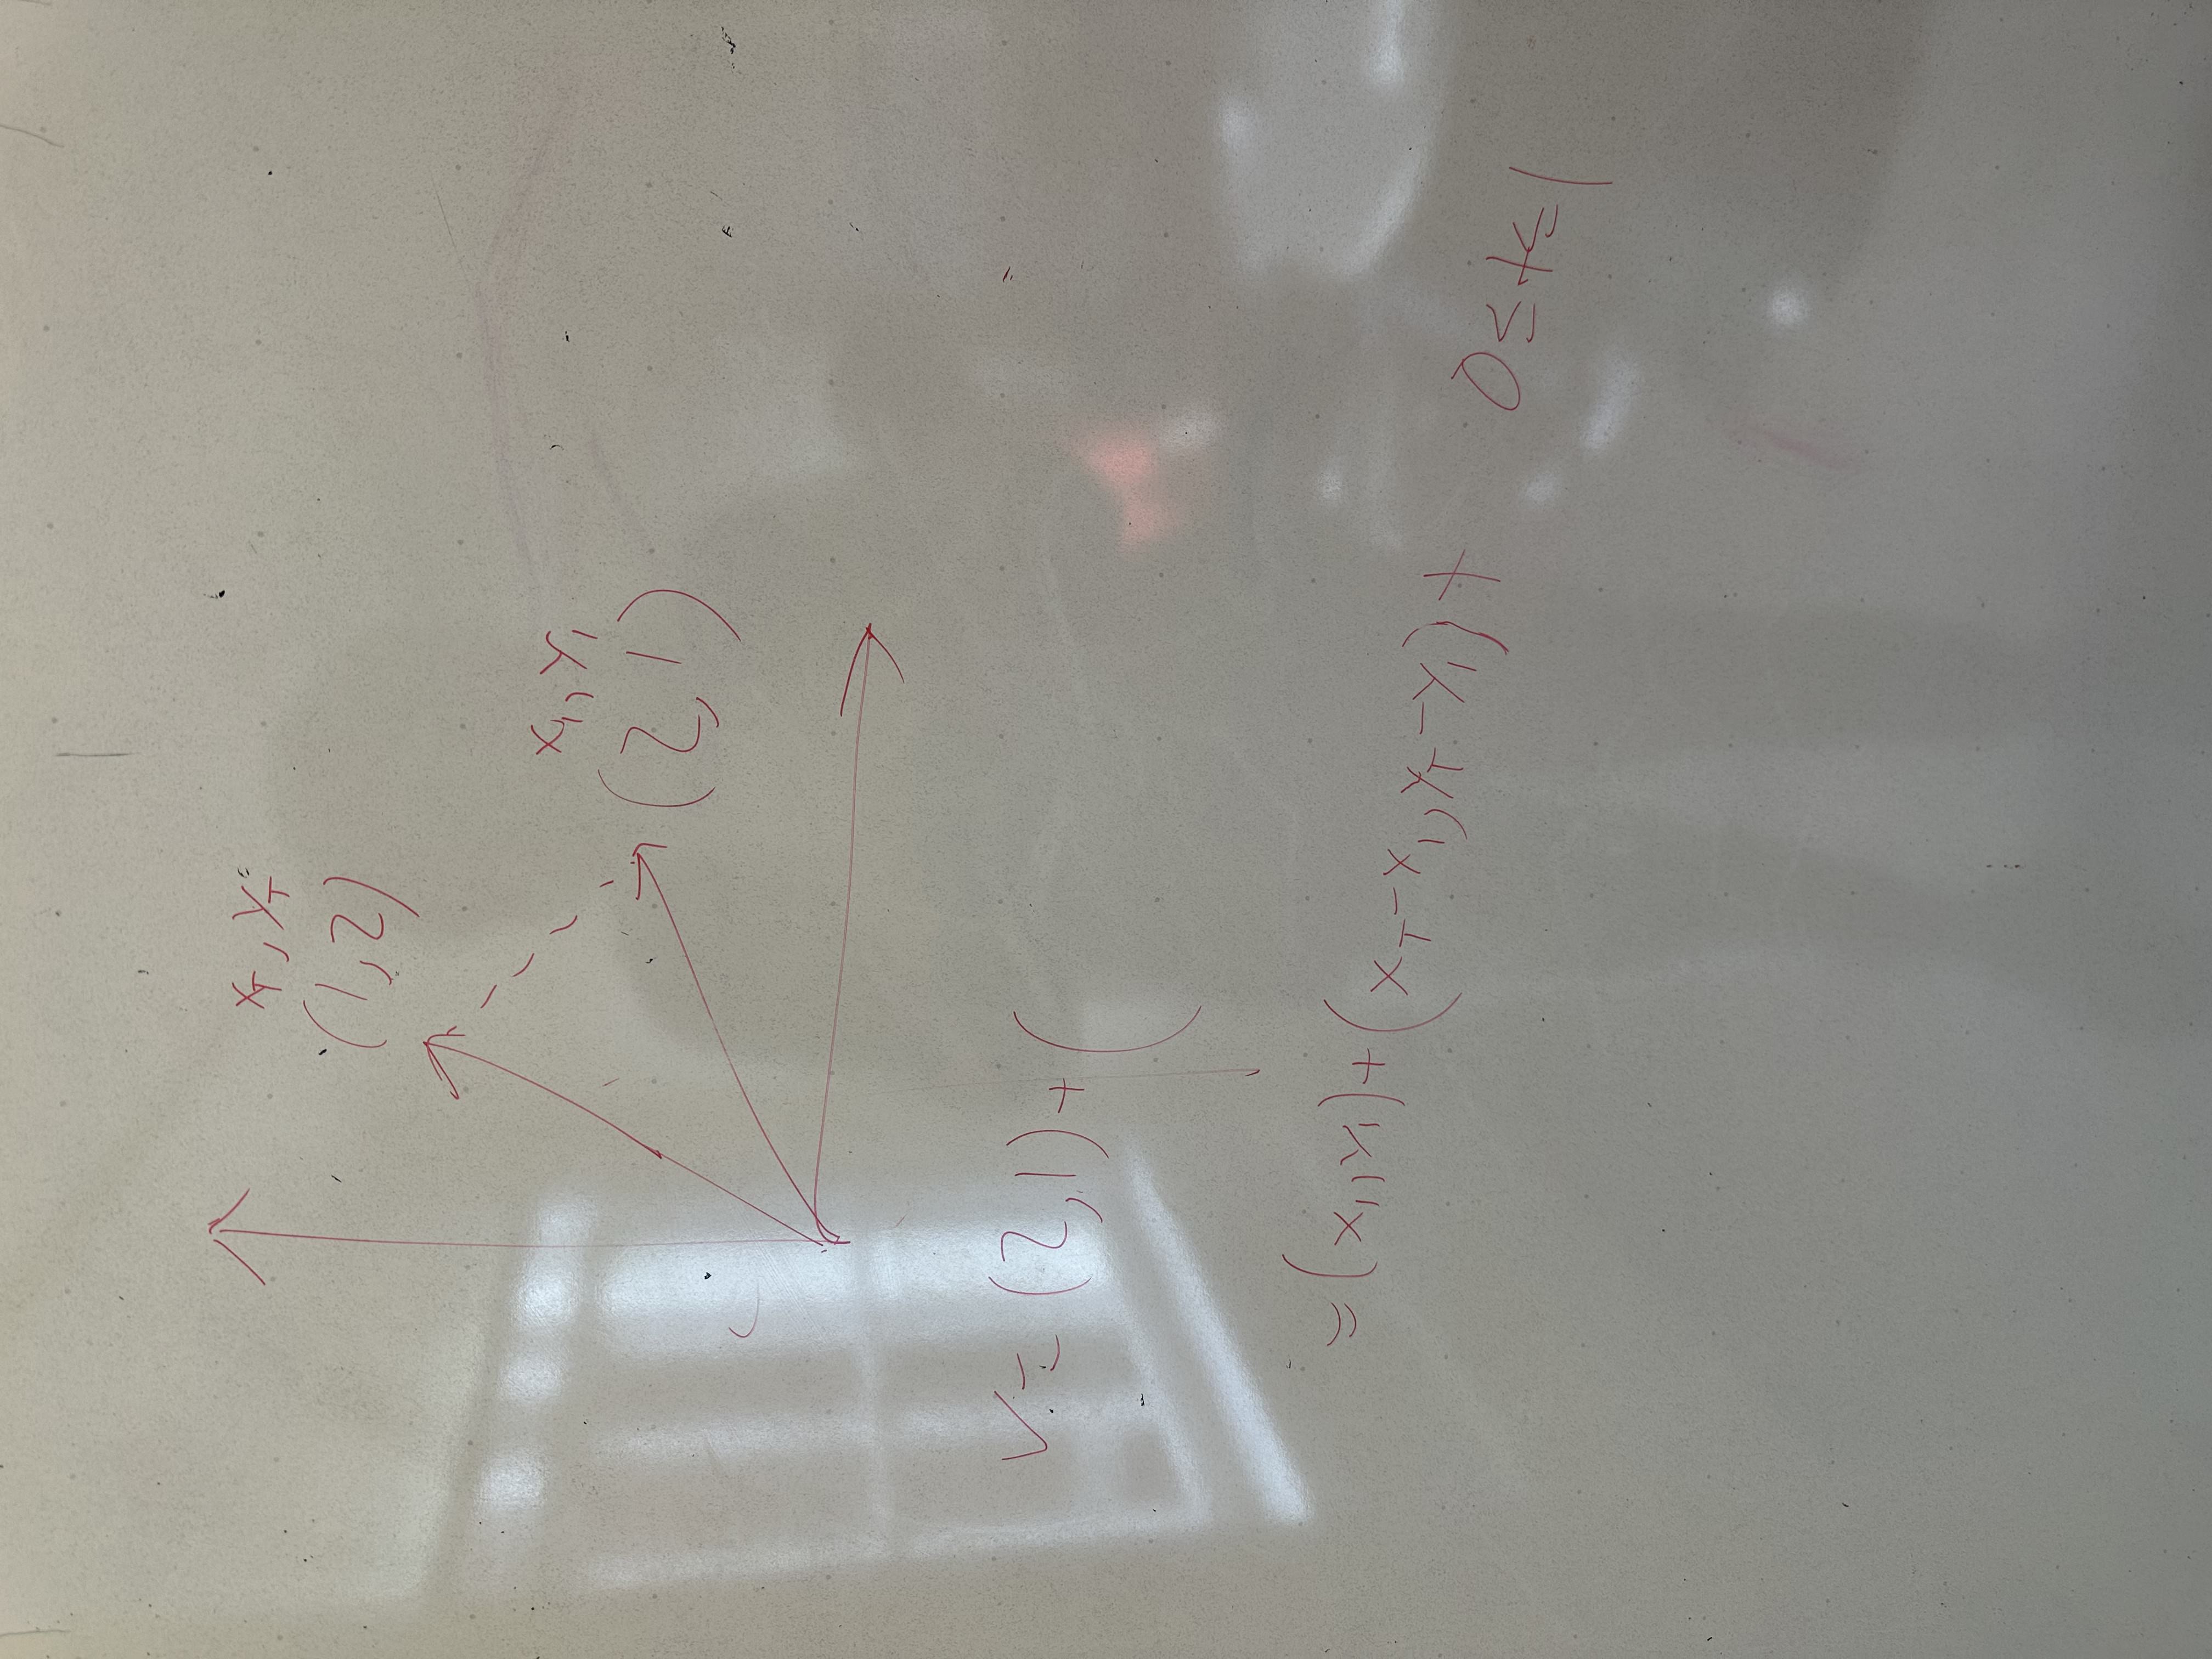 x_T, y_T
(1,2)
x_1, y_1
(2,1)
V = (2,1) + (
= (x_1, y_1) + (x_T - x_1, y_T - y_1) t
0 ≤ t ≤ 1